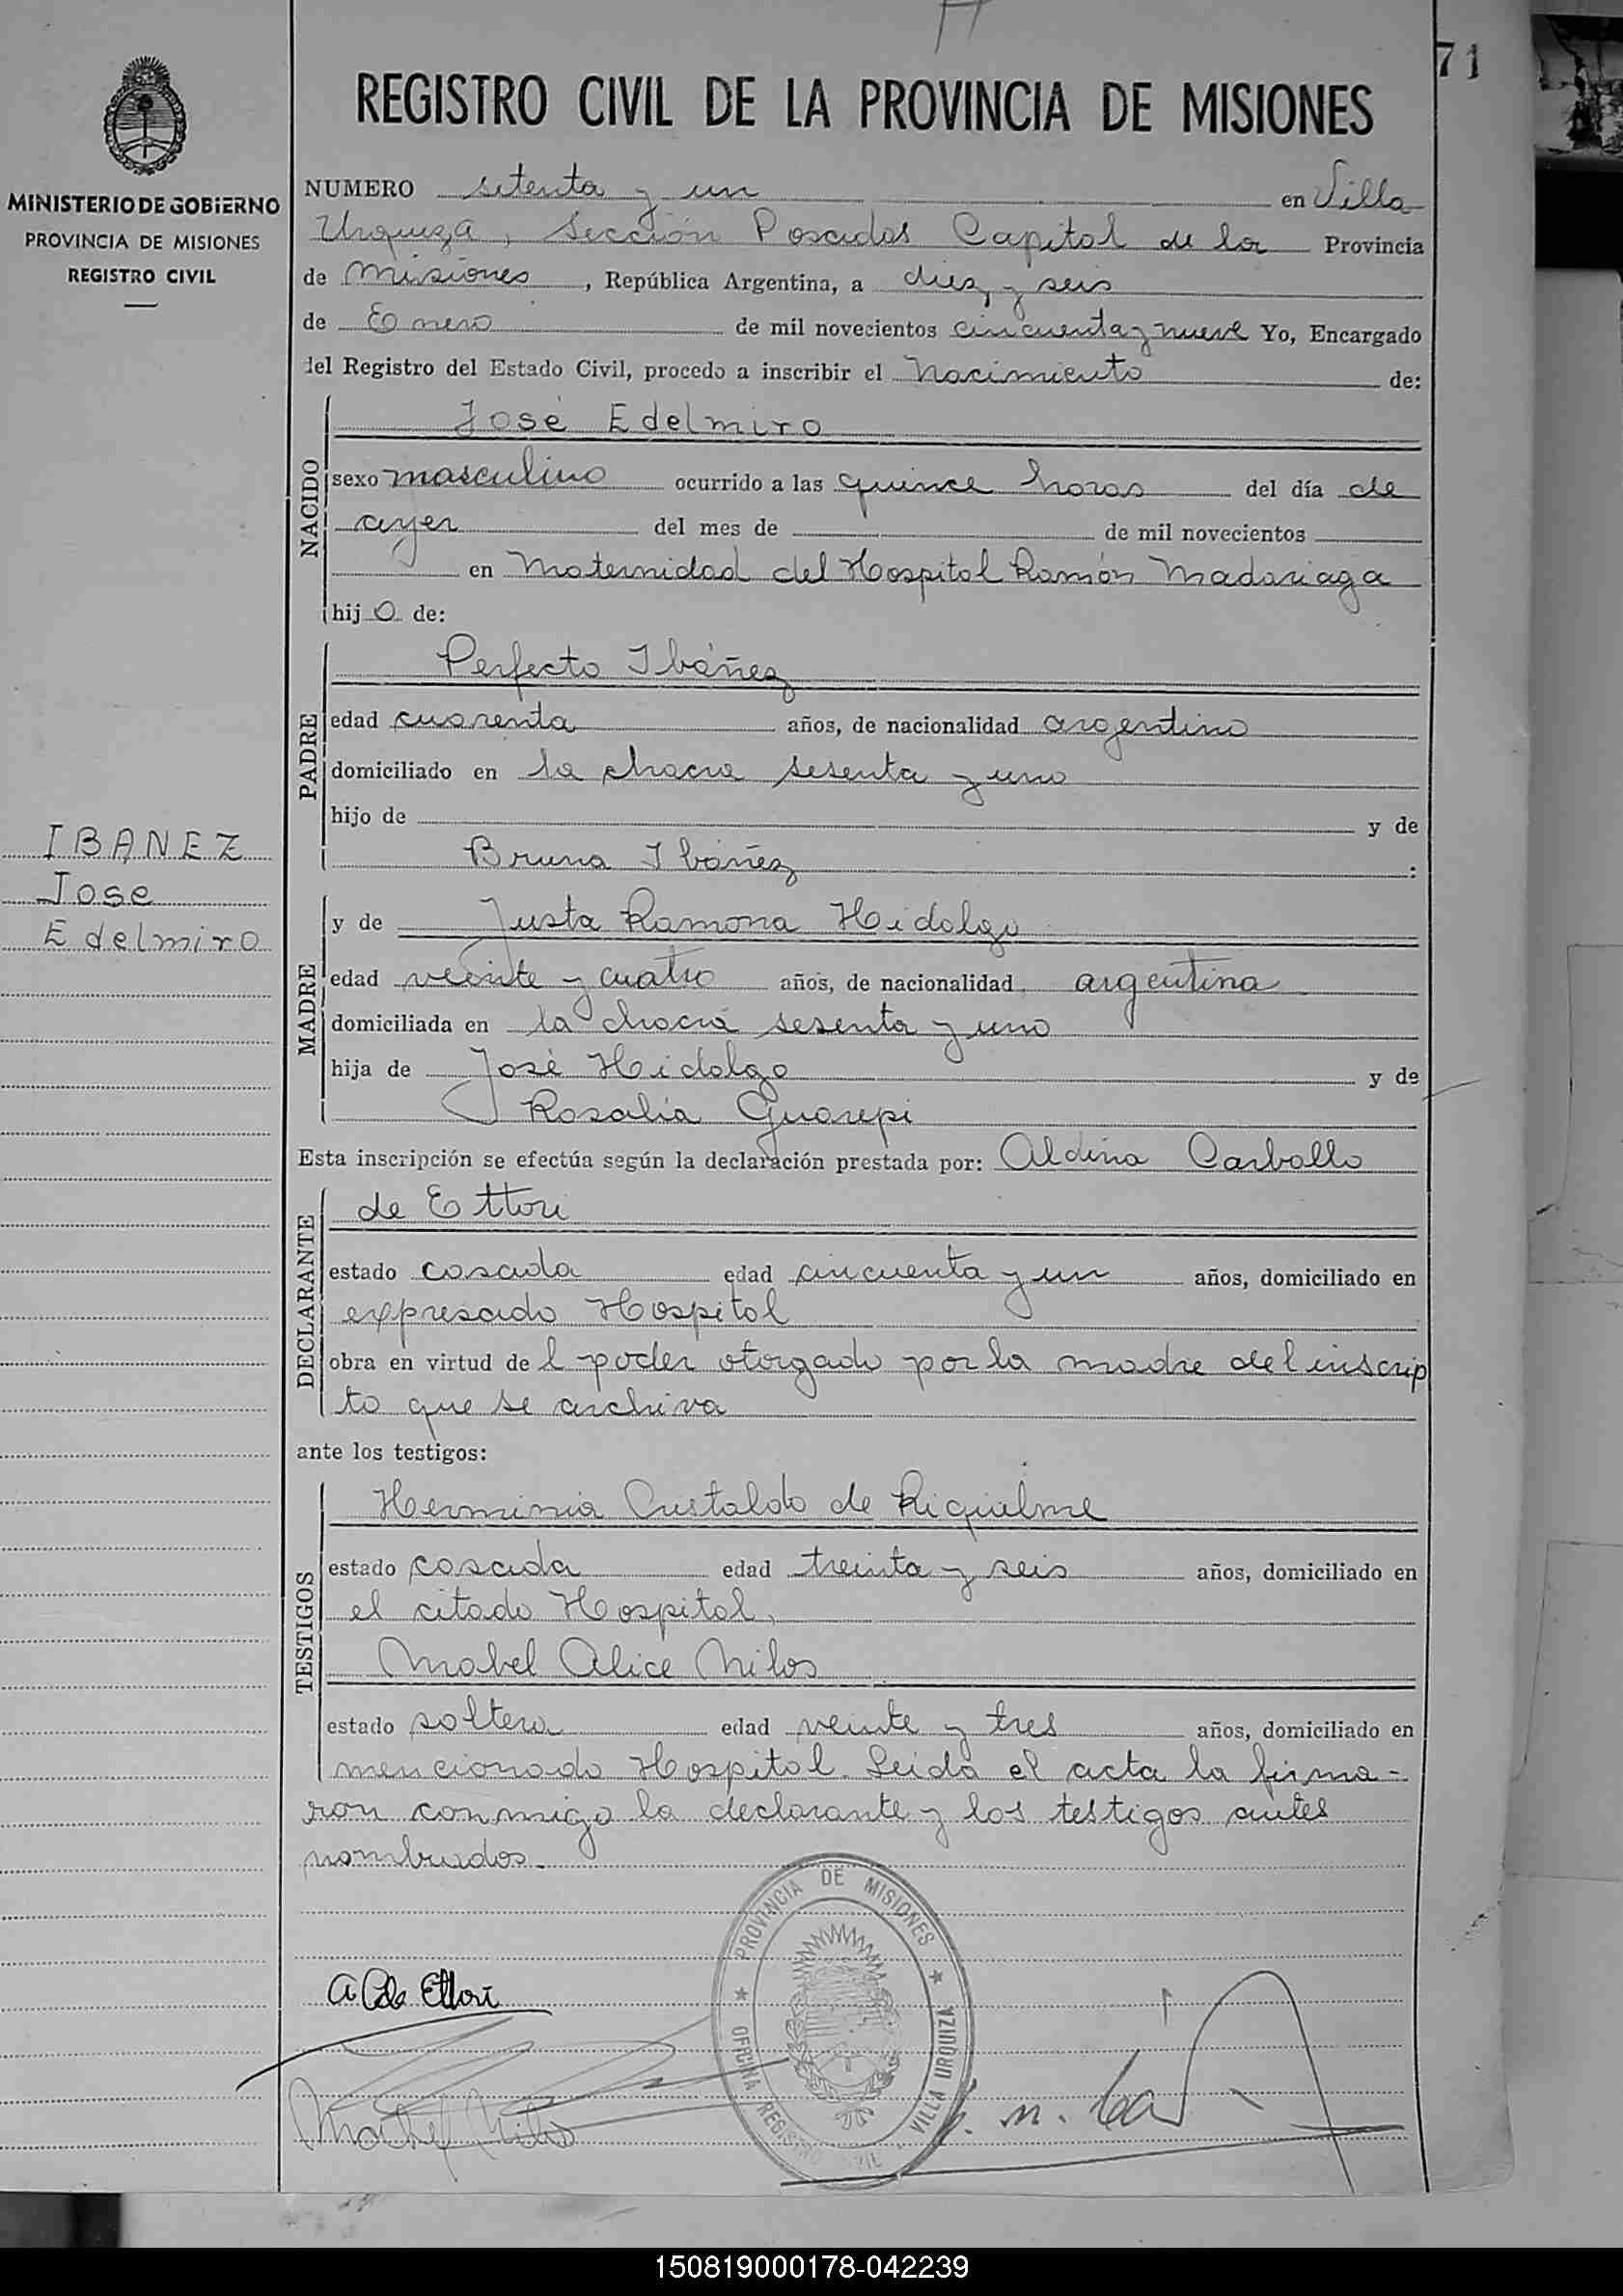 71
REGISTRO CIVIL DE LA PROVINCIA DE MISIONES
MINISTERIO DE GOBIERNO
PROVINCIA DE MISIONES
REGISTRO CIVIL
NUMERO setenta y un en Villa
Urquiza, Sección Posadas Capital de la Provincia
de Misiones, República Argentina, a diez y seis
de Enero de mil novecientos cincuenta y nueve Yo, Encargado
del Registro del Estado Civil, procedo a inscribir el nacimiento de:
NACIDO
José Edelmiro
sexo masculino ocurrido a las quince horas del día de
ayer del mes de de mil novecientos
en Maternidad del Hospital Ramón Madariaga
hijo de:
PADRE
Perfecto Ibáñez
edad cuarenta años, de nacionalidad argentino
domiciliado en la chacra sesenta y uno
hijo de y de
Bruna Ibáñez :
IBANEZ
Jose
Edelmiro
MADRE
y de Justa Ramona Hidalgo
edad veinte y cuatro años, de nacionalidad argentina
domiciliada en la chacra sesenta y uno
hija de José Hidalgo y de
Rosalía Guarepi
Esta inscripción se efectúa según la declaración prestada por: Aldina Carballo
DECLARANTE
de Ettori
estado casada edad cincuenta y un años, domiciliado en
expresado Hospital
obra en virtud del poder otorgado por la madre del inscrip
to que se archiva
ante los testigos:
TESTIGOS
Herminia Cristaldo de Riquelme
estado casada edad treinta y seis años, domiciliado en
el citado Hospital,
Mabel Alice Milos
estado soltera edad veinte y tres años, domiciliado en
mencionado Hospital. Leida el acta la firma-
ron conmigo la declarante y los testigos antes
nombrados.
PROVINCIA DE MISIONES
OFICINA REGISTRO CIVIL VILLA URQUIZA
A C de Ettori
Mabel Milos
150819000178-042239